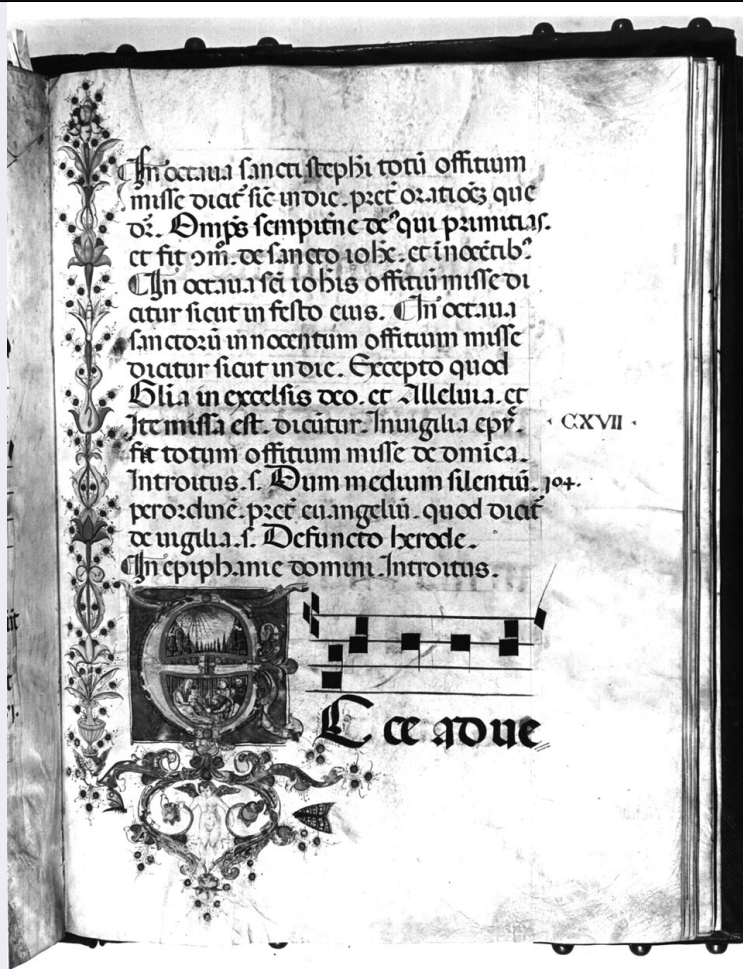 In octaua sancti stephi totū offitium
misse dicit̄ sic̄ in die. pret̄ oratiōeȝ que
dr̄. Omp̄s sempit̄ne de⁹ qui primitias.
et fit ↄm̄. de sancto ioħe. et īnocētib⁹
In octaua sc̄i ioħis offitiū misse di
citur sicut in festo eius. In octaua
sanctorū innocentum offitium misse
dicitur sicut in die. Excepto quod
Glīa in excelsis deo. et Alleluia. et
Ite missa est. dicūtur. In uigilia epy̅.
fit totum offitium misse de dominica.
Introitus. s. Dum medium silentiū. 104.
per ordinē. pret̄ euangeliū. quod dicit̄
de uigilia. s. Defuncto herode.
In epiphanie domini. Introitus.
· CXVII ·
E Cce adue